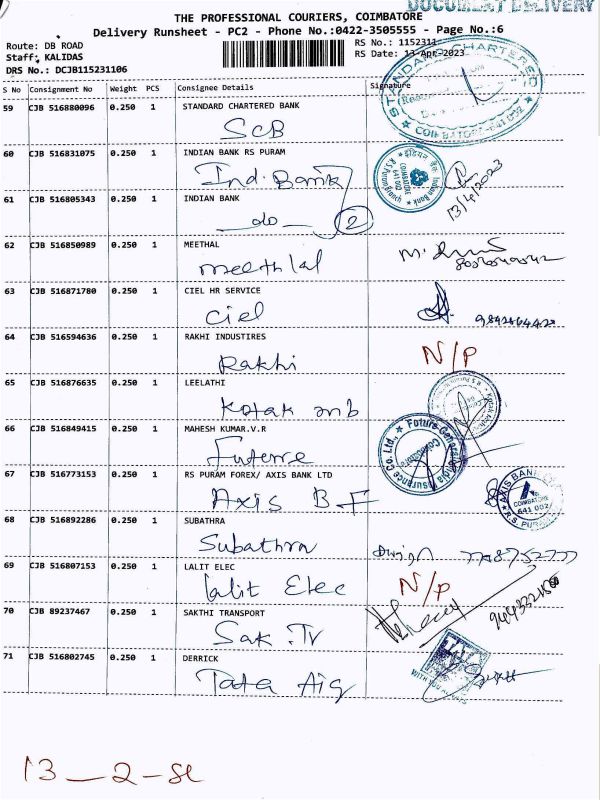 DOCUMENT DELIVERY
THE PROFESSIONAL COURIERS, COIMBATORE
Delivery Runsheet - PC2 - Phone No.:0422-3505555 - Page No.:6
Route: DB ROAD
RS No.: 1152311
Staff: KALIDAS
RS Date: 13-Apr-2023
DRS No.: DCJB115231106
S No Consignment No Weight PCS Consignee Details Signature
59 CJB 516880096 0.250 1 STANDARD CHARTERED BANK
SCB
STANDARD CHARTERED
COIMBATORE-641 002
60 CJB 516831075 0.250 1 INDIAN BANK RS PURAM
Ind. Bank
Indian Bank
COIMBATORE
641 002
13/4/2023
61 CJB 516805343 0.250 1 INDIAN BANK
do 2
62 CJB 516850989 0.250 1 MEETHAL
meethlal
63 CJB 516871780 0.250 1 CIEL HR SERVICE
Ciel
64 CJB 516594636 0.250 1 RAKHI INDUSTIRES
Rakhi N/P
65 CJB 516876635 0.250 1 LEELATHI
Kotak mb
66 CJB 516849415 0.250 1 MAHESH KUMAR.V.R
Future
Future Generali India Insurance Co. Ltd.,
Coimbatore
67 CJB 516773153 0.250 1 RS PURAM FOREX/ AXIS BANK LTD
Axis B F
AXIS BANK
COIMBATORE
641 002
R.S PURAM
68 CJB 516892286 0.250 1 SUBATHRA
Subathra
69 CJB 516807153 0.250 1 LALIT ELEC
Lalit Elec N/P
70 CJB 89237467 0.250 1 SAKTHI TRANSPORT
Sak.Tr
71 CJB 516802745 0.250 1 DERRICK
Tata Aig
WITH YOU ALWAYS
13 - 2 - sc